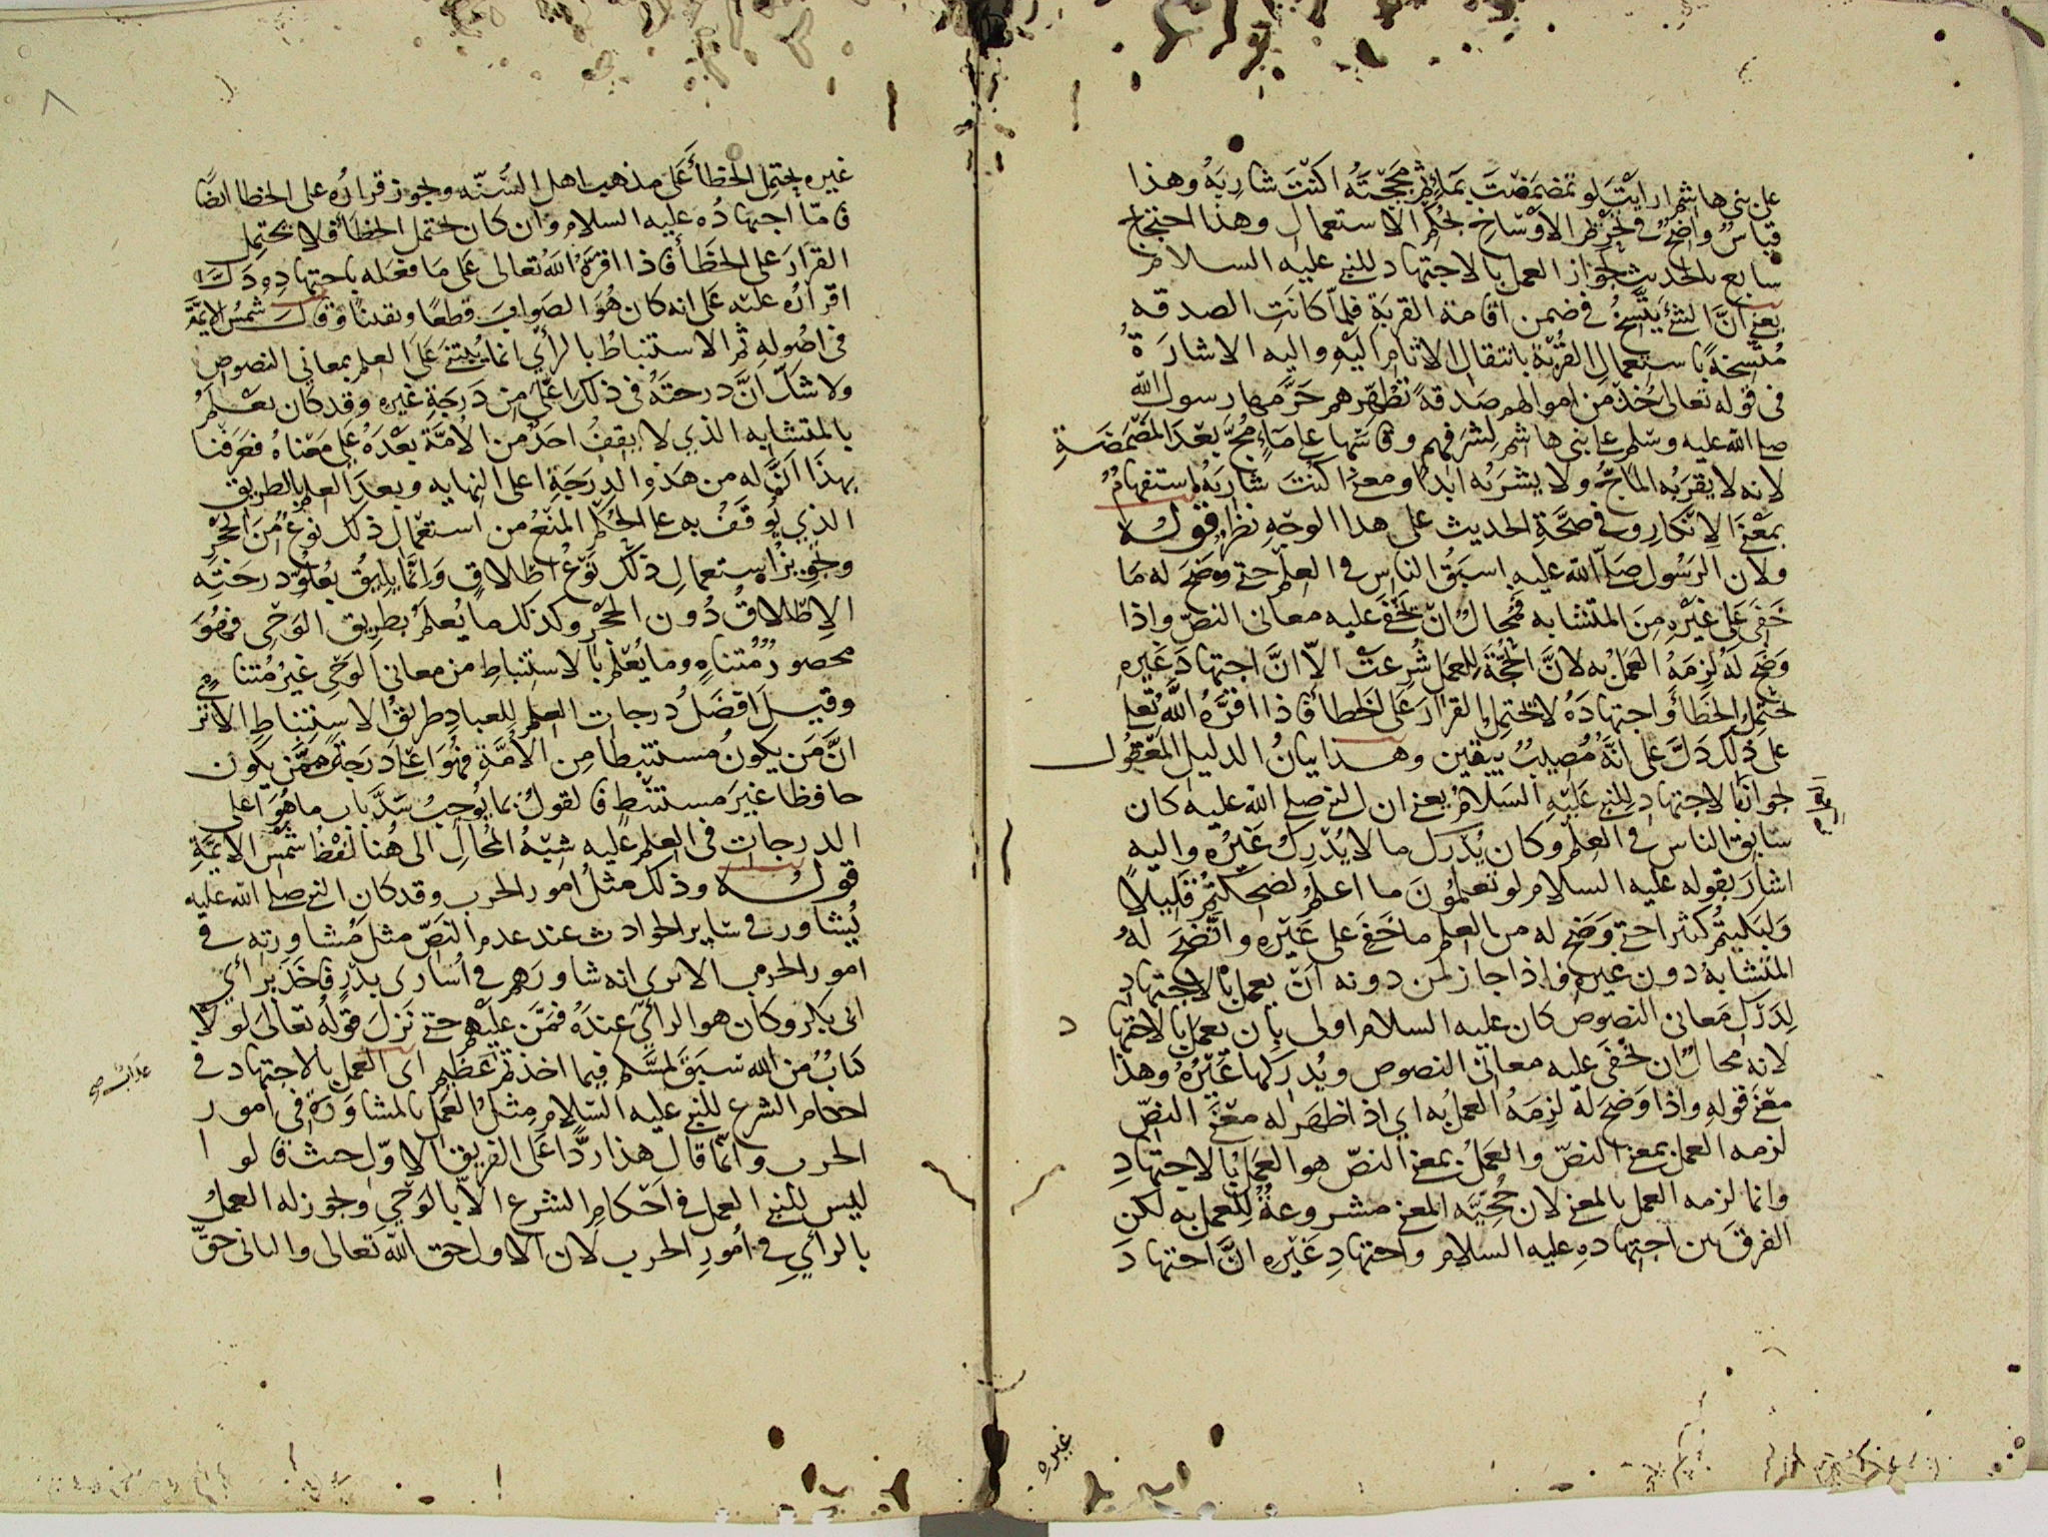 على بني هاشم ارايت لو تمضمضت بماء ثم مججته اكنت شاربه وهذا
قياس واضح في تحريم الاوساخ بحكم الاستعمال وهذا احتجاج
سابع بالحديث لجواز العمل بالاجتهاد للنبي عليه السلام
يعني ان الشئ يتسخ في ضمن اقامة القربة فلما كانت الصدقه
متسخة باستعمال القربة بانتقال الاثام اليه واليه الاشارة
في قوله تعالى خذ من اموالهم صدقة تطهرهم حرمها رسول الله
صلى الله عليه وسلم على بني هاشم لشرفهم وقاسها على ماء مج بعد المضمضة
لانه لا يقربه الماج ولا يشربه ابدا ومعنى اكنت شاربه استفهام
بمعنى الانكار وفي صحة الحديث على هذا الوجه نظر قوله
ولان الرسول صلى الله عليه اسبق الناس في العلم حتى وضح له ما
خفى على غيره من المتشابه فمحال ان تخفى عليه معانى النص واذا
وضح له لزمه العمل به لان الحجة للعمل شرعت الا ان اجتهاد غيره
يحتمل الخطأ واجتهاده لا يحتمل القرار على الخطأ فاذا اقره الله تعالى
على ذلك دل على انه مصيب بيقين وهذا بيان الدليل المعقول
لجواز الاجتهاد للنبي عليه السلام يعني ان النبي صلى الله عليه كان
سابق الناس في العلم وكان يدرك ما لا يدرك غيره واليه
اشار بقوله عليه السلام لو تعلمون ما اعلم لضحكتم قليلا
ولبكيتم كثيرا حتى وضح له من العلم ما خفي على غيره واتضح له
المتشابه دون غيره فاذا جاز لمن دونه ان يعمل بالاجتهاد
لدرك معانى النصوص كان عليه السلام اولى بان يعمل بالاجتهاد
لانه محال ان تخفى عليه معانى النصوص ويدركها غيره وهذا
معنى قوله واذا وضح له لزمه العمل به اي اذا ظهر له معنى النص
لزمه العمل بمعنى النص والعمل بمعنى النص هو العمل بالاجتهاد
وانما لزمه العمل بالمعنى لان حجيه المعنى مشروعة للعمل به لكن
الفرق بين اجتهاده عليه السلام واجتهاد غيره ان اجتهاد
غيره
غيره يحتمل الخطأ على مذهب اهل السنه ويجوز قراره على الخطا ايضا
فاما اجتهاده عليه السلام وان كان يحتمل الخطأ فلا يحتمل
القرار على الخطأ فاذا اقره الله تعالى على ما فعله باجتهاده دل
اقراره عليه على انه كان هو الصواب قطعا ويقينا وقال شمس الايمة
في اصوله ثم الاستنباط بالرأي انما يبتني على العلم بمعاني النصوص
ولا شك ان درجته في ذلك اعلى من درجة غيره وقد كان يعلم
بالمتشابه الذي لا يقف احد من الامة بعده على معناه فعرفنا
بهذا ان له من هذه الدرجة اعلى النهايه وبعد العلم بالطريق
الذي يوقف به على الحكم المنع من استعمال ذلك نوع من الحجر
وتجويز استعمال ذلك نوع اطلاق وانما يليق بعلو درجته
الاطلاق دون الحجر وكذلك ما يعلم بطريق الوحي فهو
محصور متناه وما يعلم بالاستنباط من معانى الوحي غير متناهي
وقيل افضل درجات العلم للعباد طريق الاستنباط الا ترى
ان من يكون مستنبطا من الامة فهو اعلى درجة ممن يكون
حافظا غير مستنبط فالقول بما يوجب سد باب ما هو اعلى
الدرجات في العلم عليه شبه المحال الى هنا لفظ شمس الايمة
قوله وذلك مثل امور الحرب وقد كان النبي صلى الله عليه
يشاور في ساير الحوادث عند عدم النص مثل مشاورته في
امور الحرب الا ترى انه شاورهم في اسارى بدر فاخذ برأي
ابي بكر وكان هو الرأي عنده فمن عليهم حتى نزل قوله تعالى لولا
كتاب من الله سبق لمسكم فيما اخذتم عظيم اى العمل بالاجتهاد في
عذاب صح
احكام الشرع للنبي عليه السلام مثل العمل بالمشاورة في امور
الحرب وانما قال هذا ردا على الفريق الاول حيث قالوا
ليس للنبي العمل في احكام الشرع الا بالوحي ويجوز له العمل
بالرأي في امور الحرب لان الاول حق الله تعالى والثانى حق